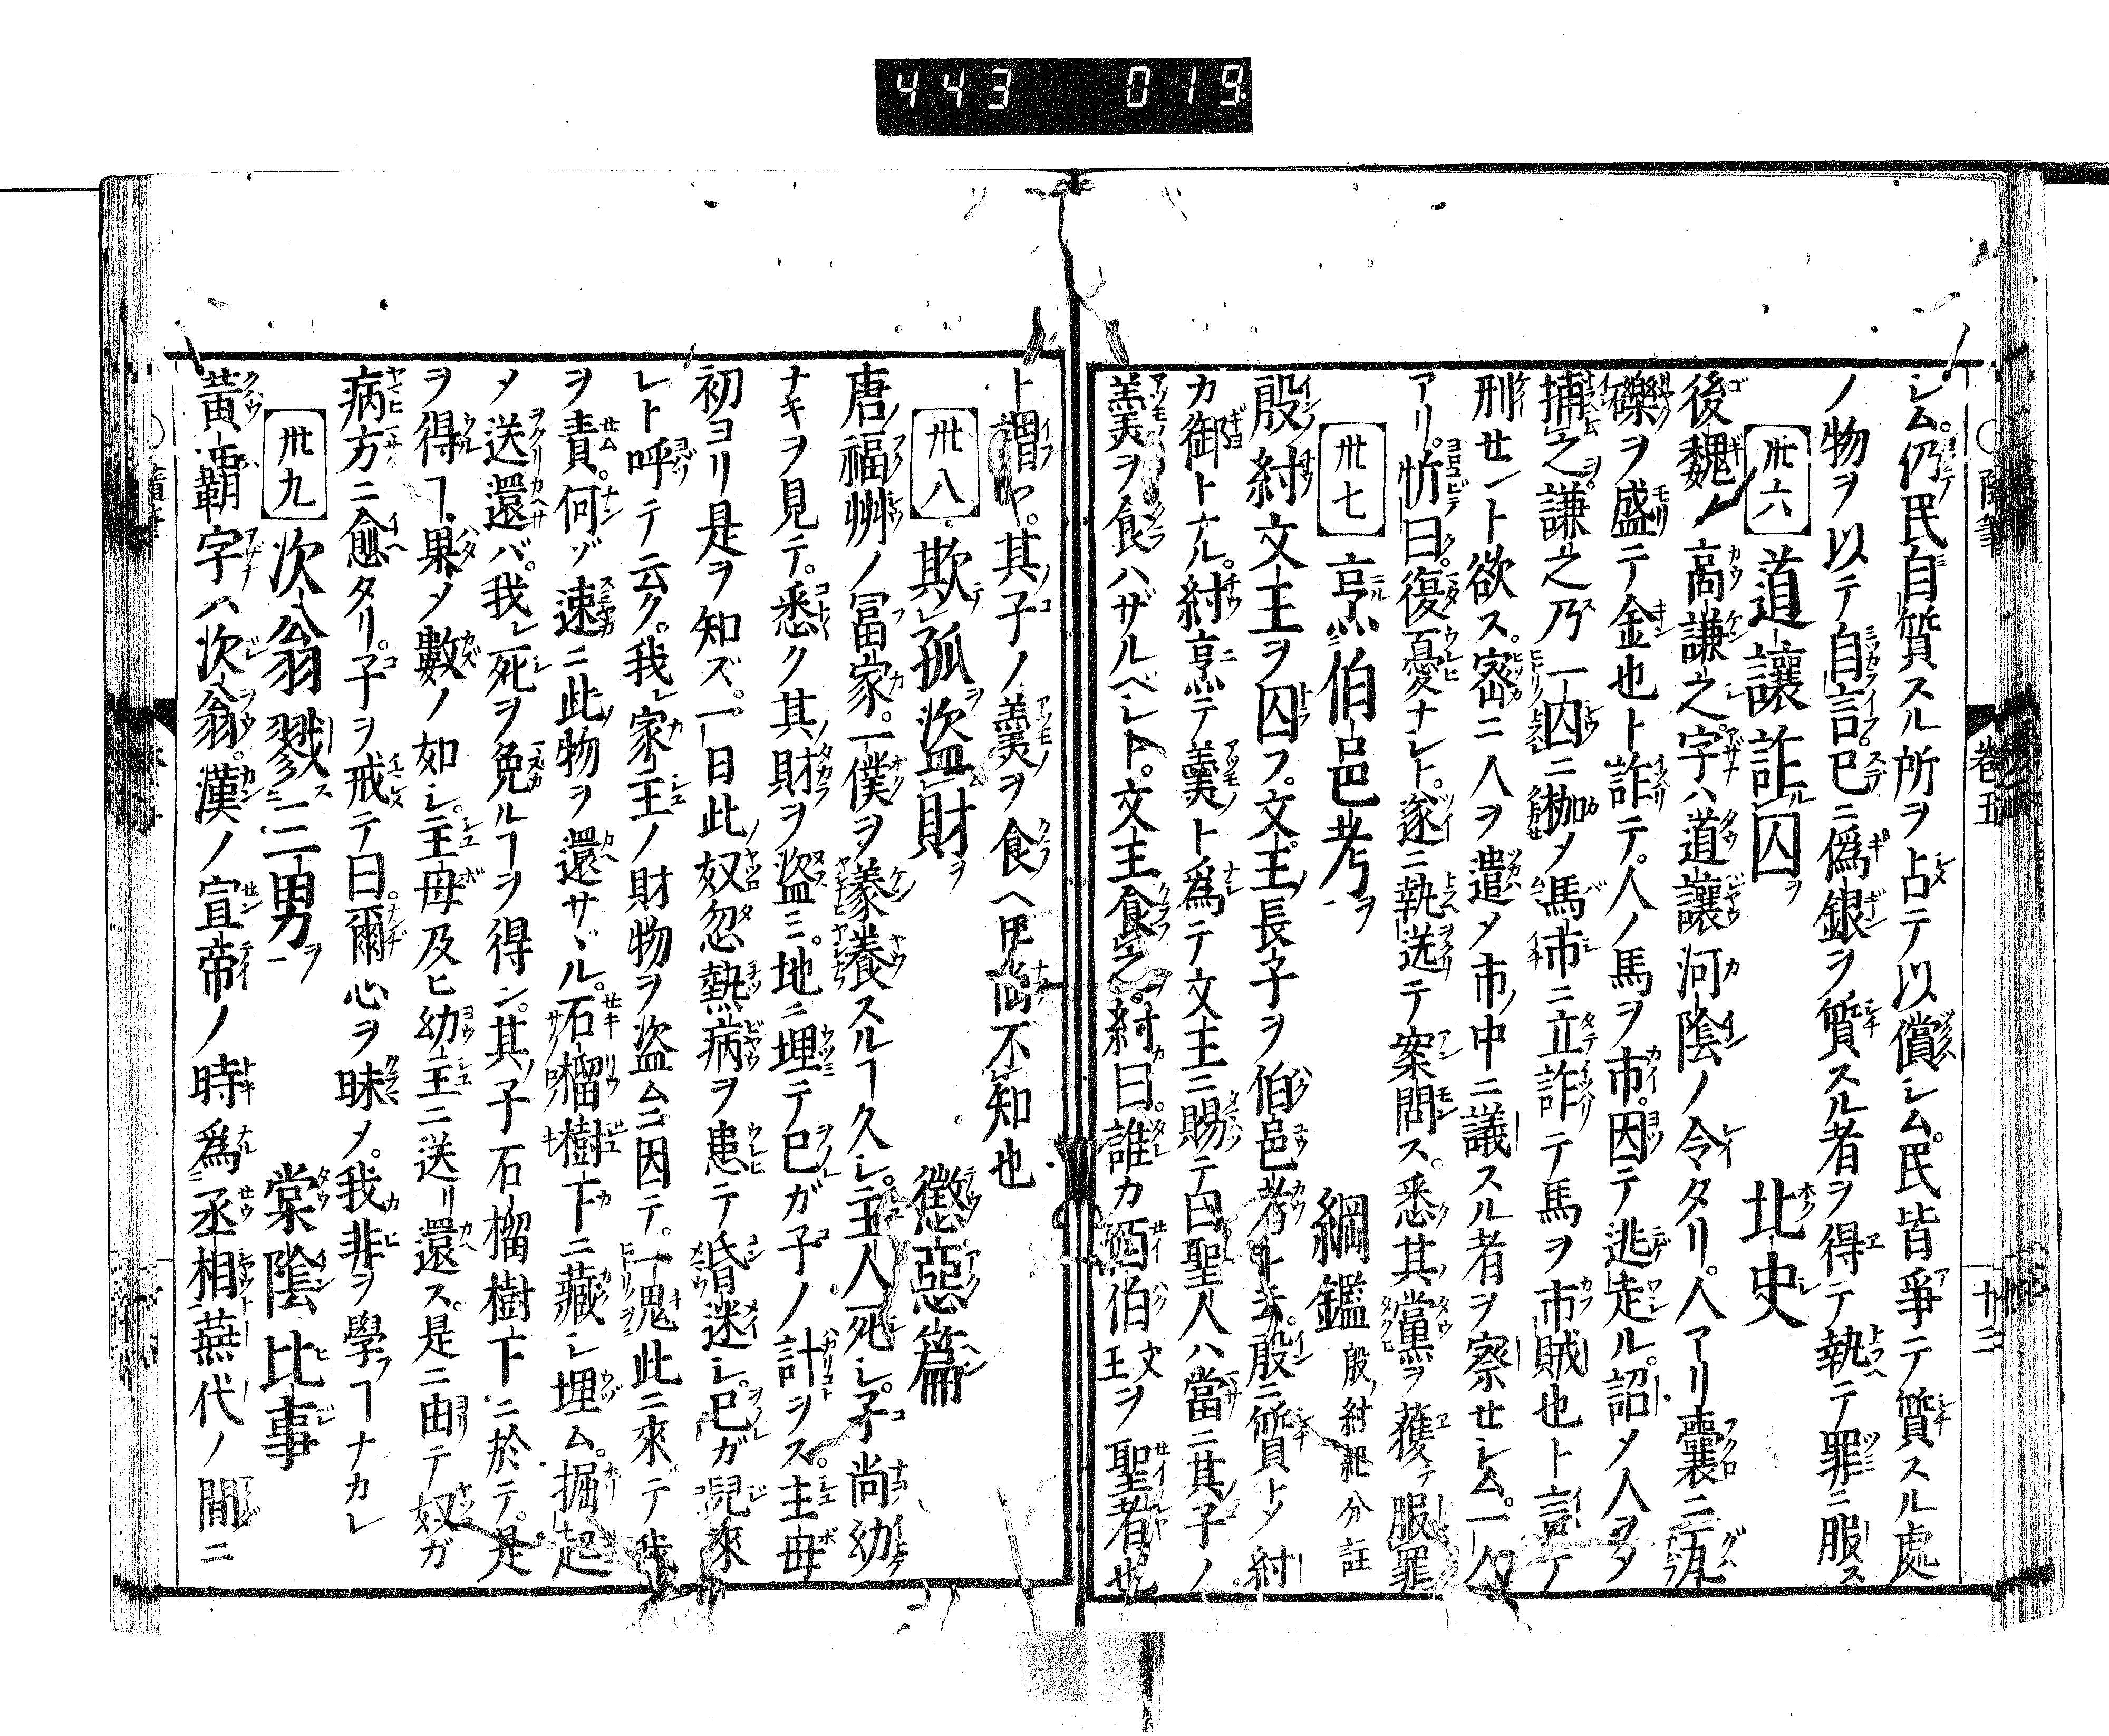 443 019
シム仍民自質スル所ヲ占テ以償シム民皆爭テ質スル處
ノ物ヲ以テ自言已ニ僞銀ヲ質スル者ヲ得テ執テ罪ニ服ス
卅六 道讓詐囚 北史
後魏ノ高謙之字ハ道讓河陰ノ令タリ人アリ囊ニ瓦
礫ヲ盛テ金也ト詐テ人ノ馬ヲ市因テ逃走ル詔メ人ヲメ
捕之謙之乃一囚ニ枷メ馬市ニ立詐テ馬ヲ市賊也ト言テ
刑セント欲ス密ニ人ヲ遣メ市ノ中ニ議スル者ヲ察セシム一人
アリ忻曰復憂ナシト遂ニ執送テ案問ス悉其黨ヲ獲テ服罪
卅七 烹伯邑考 綱鑑 殷紂紀分註
殷ノ紂文王ヲ囚フ文王ノ長子ヲ伯邑考ト云殷ニ質トメ紂
カ御トナル紂烹テ羹ト爲テ文王ニ賜テ曰聖人ハ當ニ其子ノ
羹ヲ食ハザルベシト文王食之紂曰誰カ西伯文王ヲ聖者也
ト謂ヤ其子ノ羹ヲ食ヘ尚不知也
卅八 欺孤盜財 懲惡篇
唐ノ福州ノ冨家一僕ヲ豢養スルヿ久シ主人死シ子尚幼
ナキヲ見テ悉ク其財ヲ盜ミ地ニ埋テ已ガ子ノ計ヲス主母
初ヨリ是ヲ知ズ一日此奴忽熱病ヲ患テ昏迷シ已ガ兒來
レト呼テ云ク我家主ノ財物ヲ盜ムニ因テ一鬼此ニ來デ我
ヲ責何ゾ速ニ此物ヲ還サヾル石榴樹下ニ藏シ埋ム掘起
メ送還バ我死ヲ免ルヿヲ得ン其子石榴樹下ニ於テ是
ヲ得ヿ果メ數ノ如シ主母及ヒ幼主ニ送リ還ス是ニ由テ奴ガ
病方ニ愈タリ子ヲ戒テ曰爾心ヲ昧メ我非ヲ學ヿナカレ
卅九 次翁戮三男 棠陰比事
黃霸字ハ次翁漢ノ宣帝ノ時爲丞相燕代ノ間ニ